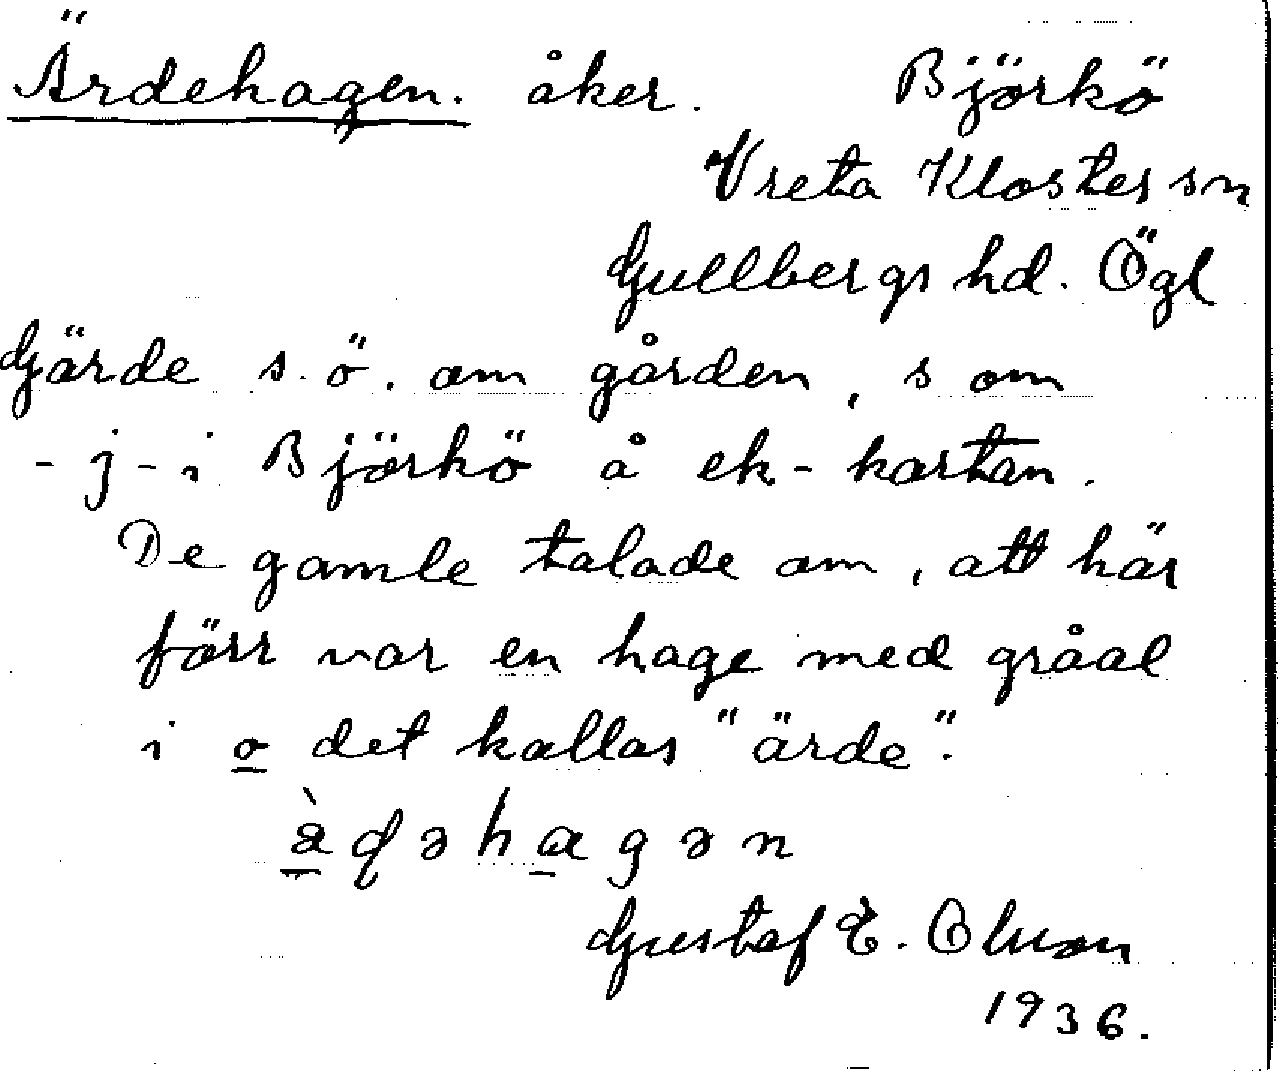 Ärdehagen. åker. Björkö
Vreta Kloster sn
Gullbergs hd. Ögl
Gärde s.ö. om gården, som
-j-i Björkö å ek-kartan.
De gamle talade om, att här
förr var en hage med gråal
i o det kallas "ärde".
Gustaf E. Olsson
1936.